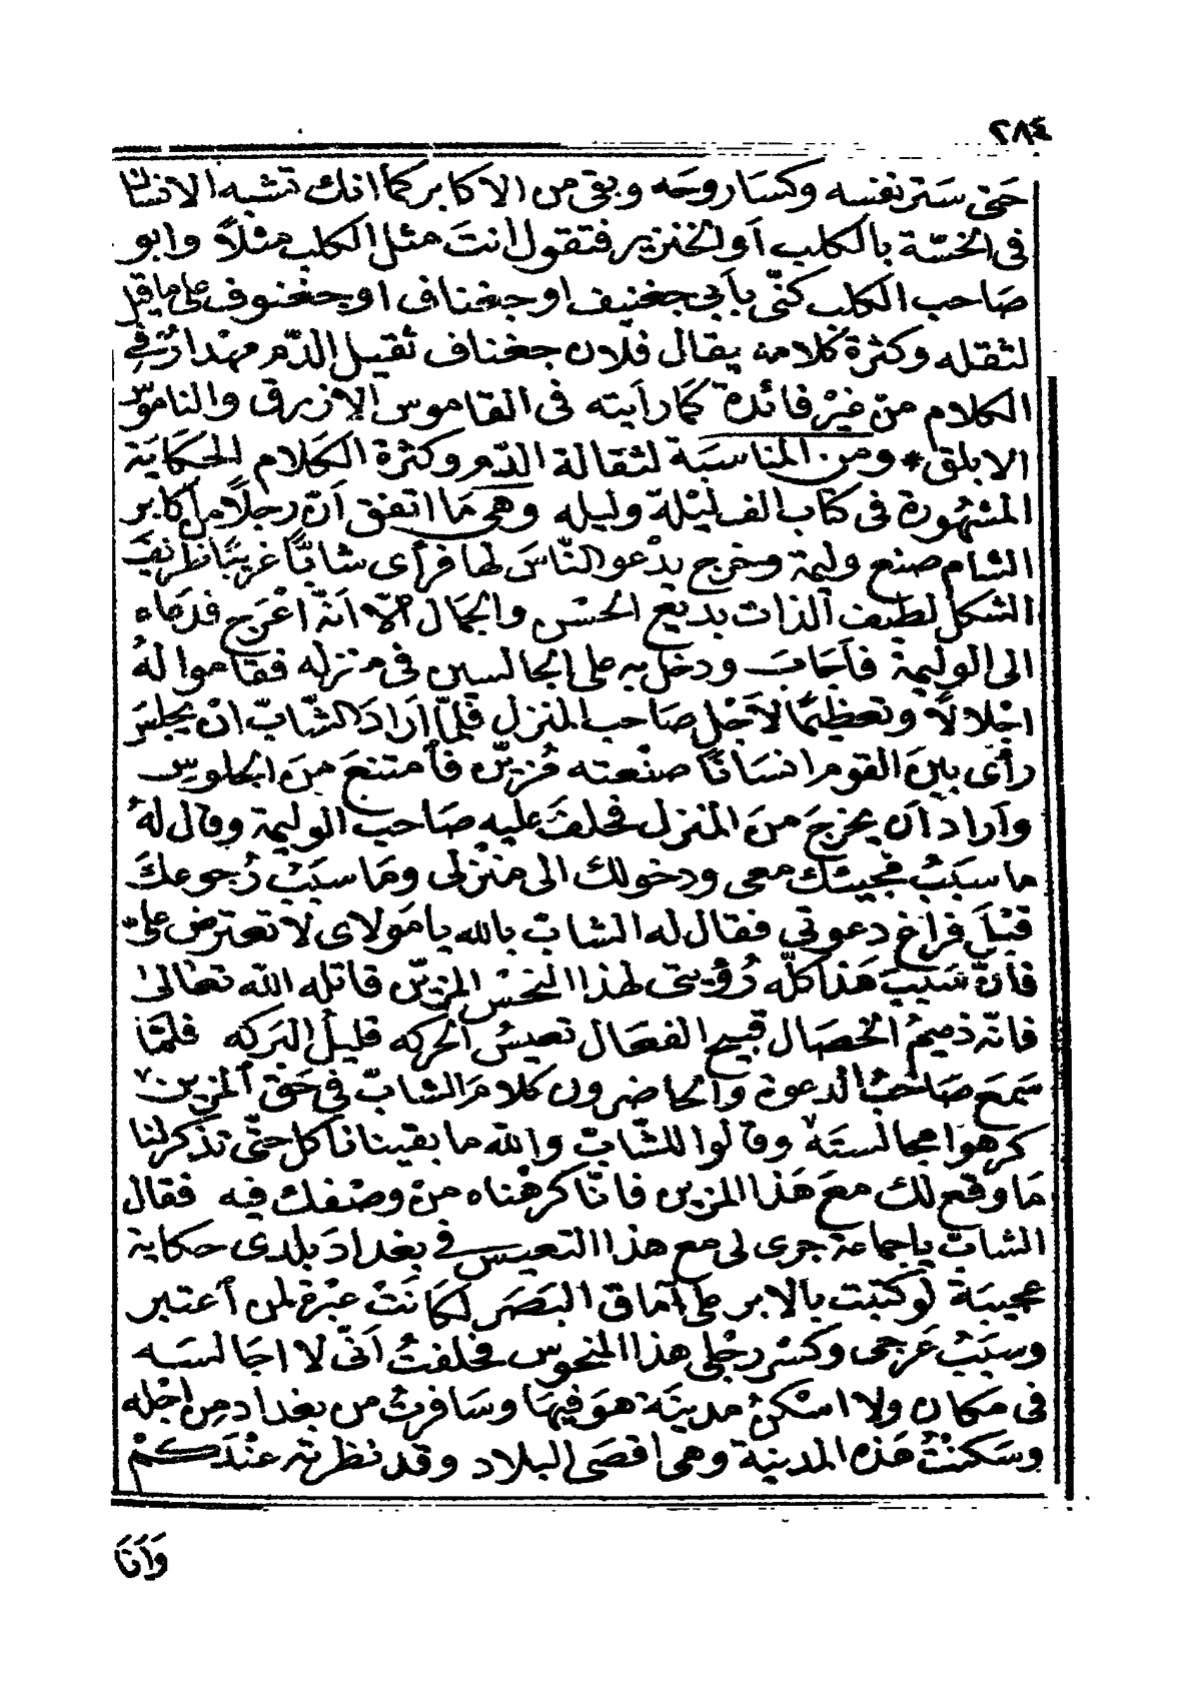 ٢٨٤
حَتى سَتر نفسه وكسَا روحَه وبقى من الاكابر كما انك تشبه الانسَان
فى الخسّة بالكلب اَو الخنزير فتقول انتَ مثل الكلب مثلاً وابو
صَاحب الكلب كنّى باَبى جغنيف او جغناف او جغنوف على ما قيل
لثقله وكثرة كلامه يقال فلان جغناف ثقيل الدّم مهْدار فى
الكلام منْ غيْر فائدة كمَا رايته فى القاموس الازرق والناموس
الابلق* ومن المناسَبَة لثقالة الدّم وكثرة الكَلام الحكَايَة
المشهُورة فى كتاب الف ليْلة وليله وهى مَا اتفق اَنّ رجلاً من اكابر
الشام صنع وليمة وخرج يدْعو النّاسَ لها فرأى شابّاً غريبًا ظريفَ
الشكل لطيف الذات بديع الحسْن والجمَال الّا اَنّه اعْرَج فدعَاه
الى الوليمة فاَجَابَ ودخل به على الجالسين فى منزله فقاموا لهُ
اجْلالاً وتعظيمًا لاَجْل صَاحب المنزل فلمّا اَرَادَ الشّابّ انْ يجْلسَ
رأى بينَ القوم انسَانًا صنْعته مُزيّن فاَمتنعَ منَ الجلوس
واَراد اَن يخرجَ منَ المنزل فحلفَ عليه صَاحب الوليمة وقال لهُ
ما سبَبُ مجيئك معى ودخولك الى منْزلى ومَا سبَبُ رُجوعكَ
قبْلَ فراغ دعوتى فقال له الشابّ بالله يا مَولاى لا تعترض علىّ
فانّ سَبَبَ هَذا كلّه رُؤيتى لهذا النحسْ المزيّن قاتله الله تعَالىٰ
فانّه ذميمُ الخصَال قبيح الفعَال تعيسُ الحركه قليلُ البَركه فلمّا
سَمعَ صَاحبُ الدعوة والحاضرون كلامَ الشابّ فى حَق المزين
كرهوا مجالستَه وقالوا للشّابّ والله ما بقينا ناكل حتّى تذكر لنا
مَا وقع لك معَ هَذا المزين فانّا كرهْناه منْ وصْفك فيه فقال
الشابّ يا جماعة جرى لى مع هذا التعيس فى بغدادَ بلدى حكاية
عجيبَة لو كتبت بالابر على آماق البَصَر لكَانَتْ عبْرَة لمن اَعتبر
وسبَبُ عَرجى وكسْر رجْلى هذا المنحوس فحلفتُ اَنّى لا اجَالسَه
فى مَكان ولا اسْكنُ مدينَة هوَ فيهَا وسَافرتُ من بغداد من اجْله
وسَكنْتُ هَذه المدينة وهى اقصَى البلاد وقد نظرته عنْدَكمْ
وَاَنَا